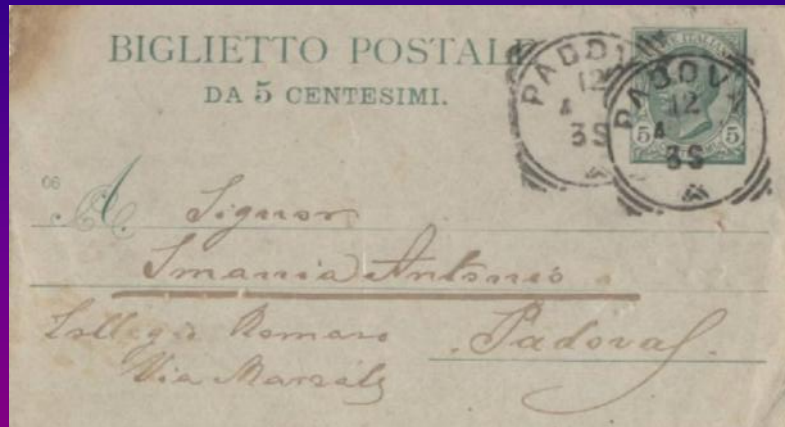 BIGLIETTO POSTALE
DA 5 CENTESIMI.
PADOVA
12
4
3S
PADOVA
12
4
3S
5 5
06
A Signor
Smania Antonio
Collegio Romano
Padova
Via Marsala